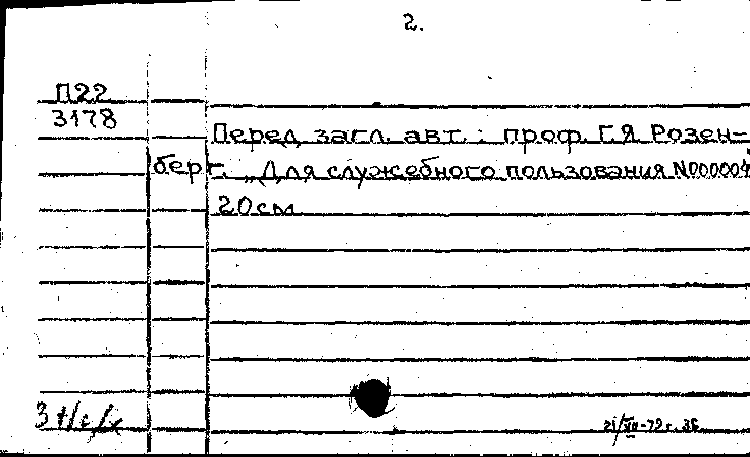 2.
П22
3178
Перед загл. авт.: проф. Г.Я. Розен-
берг. „Для служебного пользования N000004
20см
21/VII-79г. ЗБ